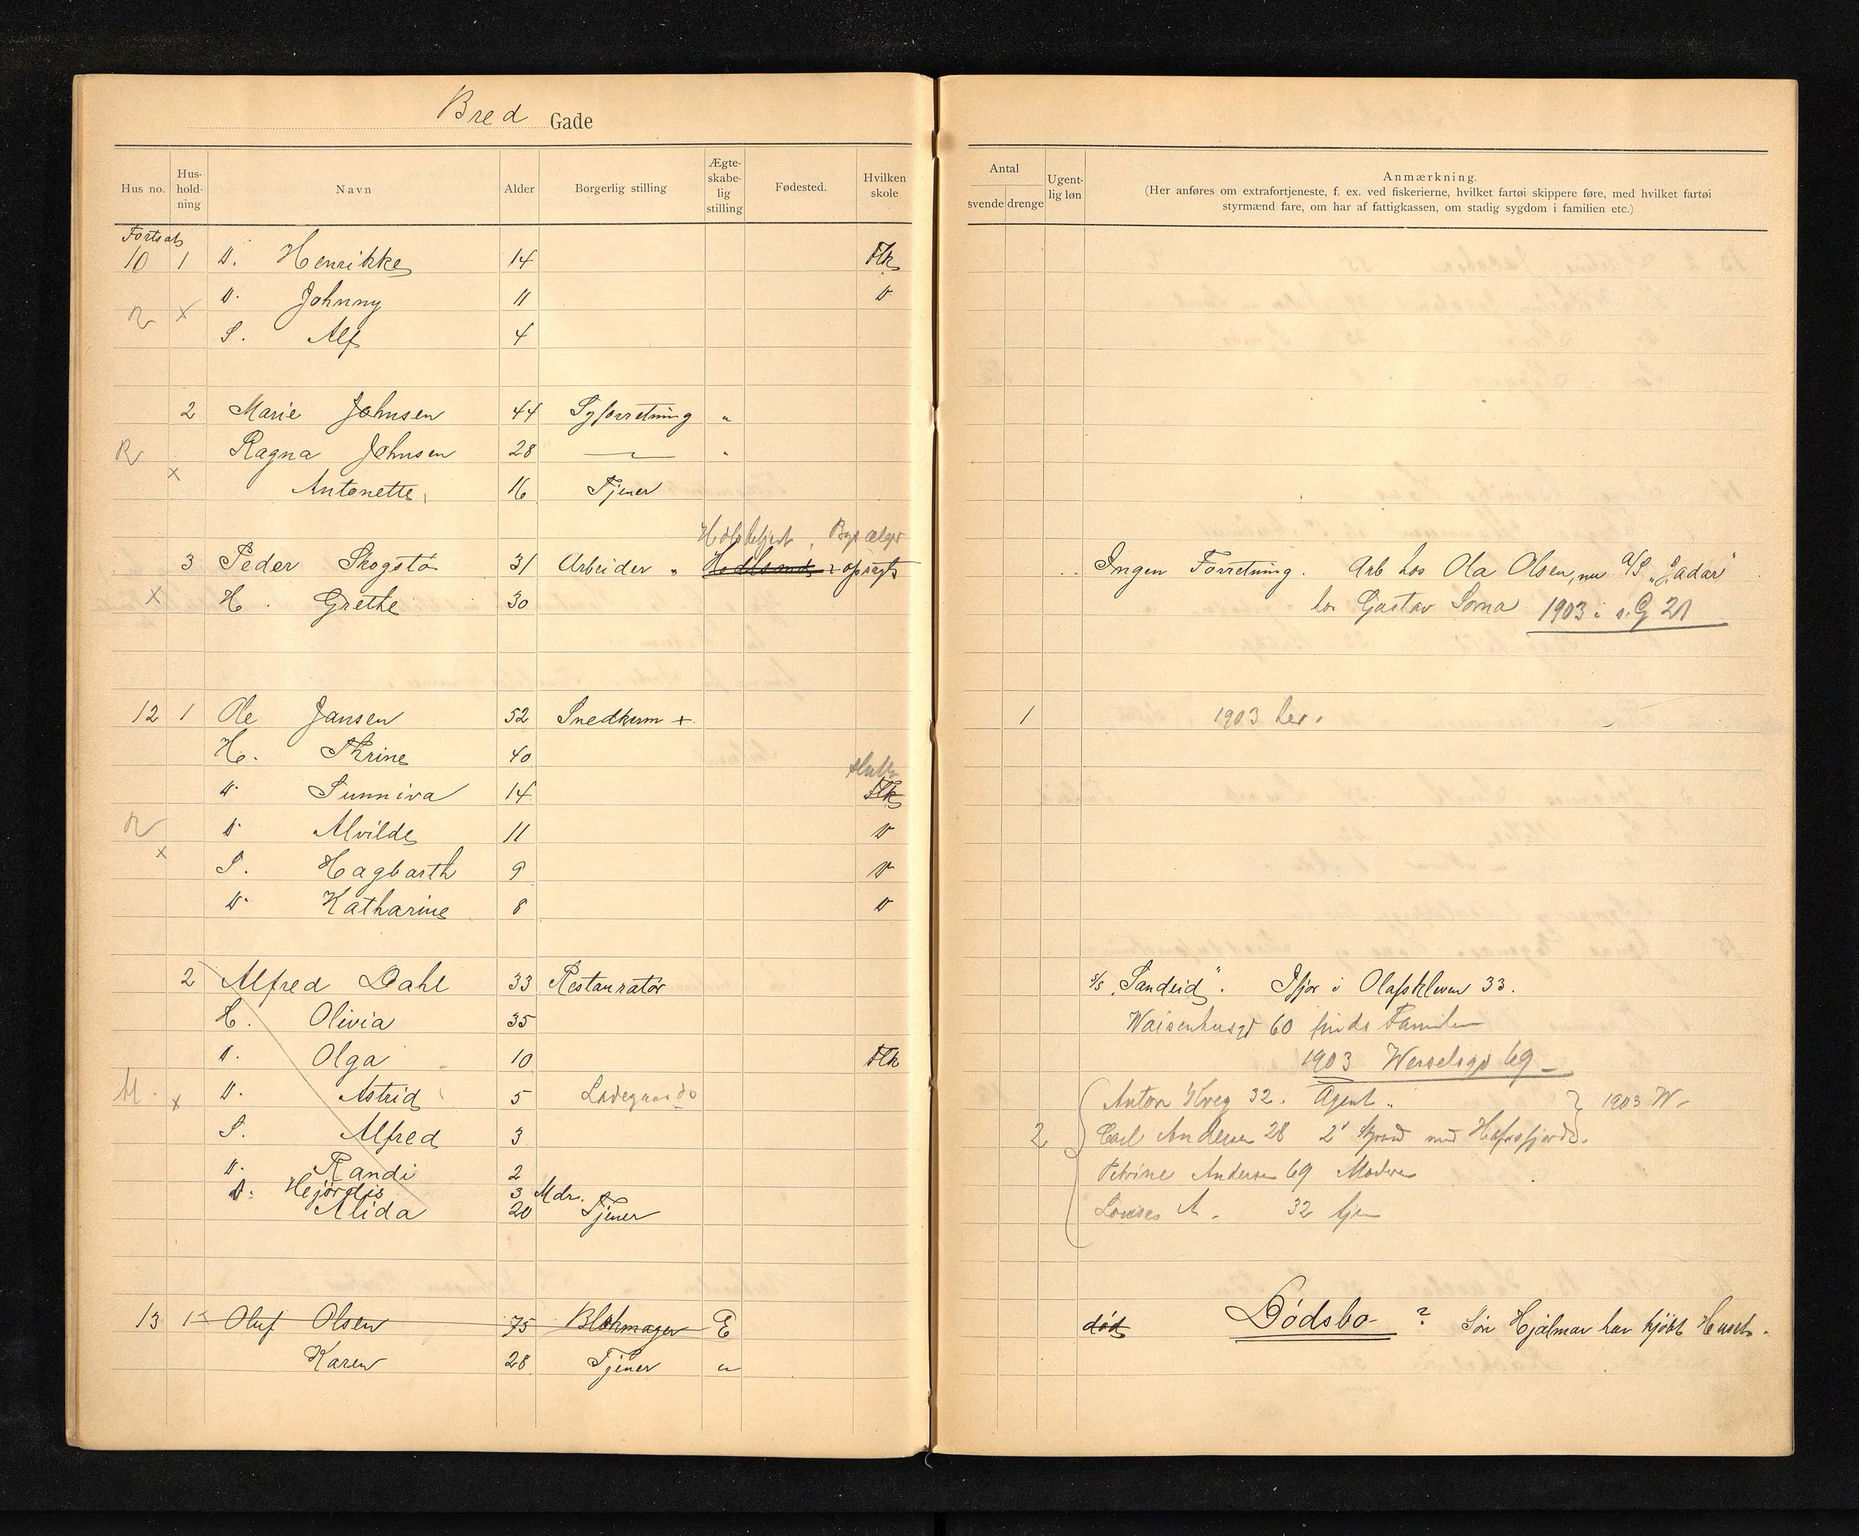 Bred Gade
Hus no. Hus-hold-ning Navn Alder Borgerlig stilling Ægte-skabe-lig stilling Fødested. Hvilken skole
Fortsat
10 1 D. Henrikke 14 Flk
D. Johnny 11 D
R x
S. Alf 4
2 Marie Johnsen 44 Syforretning "
R Ragna Johnsen 28 — "
x
Antonette 16 Tjener
3 Peder Skogstø 31 Arbeider " opsagt
x H. Grethe 30
12 1 Ole Jansen 52 Snedkerm +
H. Thrine 40
slutt
D. Sunniva 14 Flk
R D. Alvilde 11 D
x
S. Hagbarth 9 D
D. Katharine 8 D
2 Alfred Dahl 33 Restauratør
H. Olivia 35
D. Olga 10 Flk
M. x D. Astrid 5 Ladegaard
S. Alfred 3
D. Randi 2
D. Hejørdis 3 Mdr.
Alida 20 Tjener
13 1 Oluf Olsen 75 Blokmager E
Karen 28 Tjener "
Antal
svende drenge
Ugent-lig løn
Anmærkning.
(Her anføres om extrafortjeneste, f. ex. ved fiskerierne, hvilket fartøi skippere føre, med hvilket fartøi
styrmænd fare, om har af fattigkassen, om stadig sygdom i familien etc.)
Ingen Forretning. Arb hos Ola Olsen, nu A/S "Jadar"
hos Gustav Søma 1903 i s. G 21
1 1903 her.
s/s "Sandeid". Ifjor i Olafskleven 33.
Waisenhusgd 60 finds Familien
1903 Wesselsgd 69
Anton 32. Agent " 1903 W
2 Carl Andersen 28 2' Styrmd med Hafrsfjord.
Petrine Andersen 69 Moder
Louise A. 32 tjen
død Dødsbo ? Søn Hjalmar har kjøbt Huset.